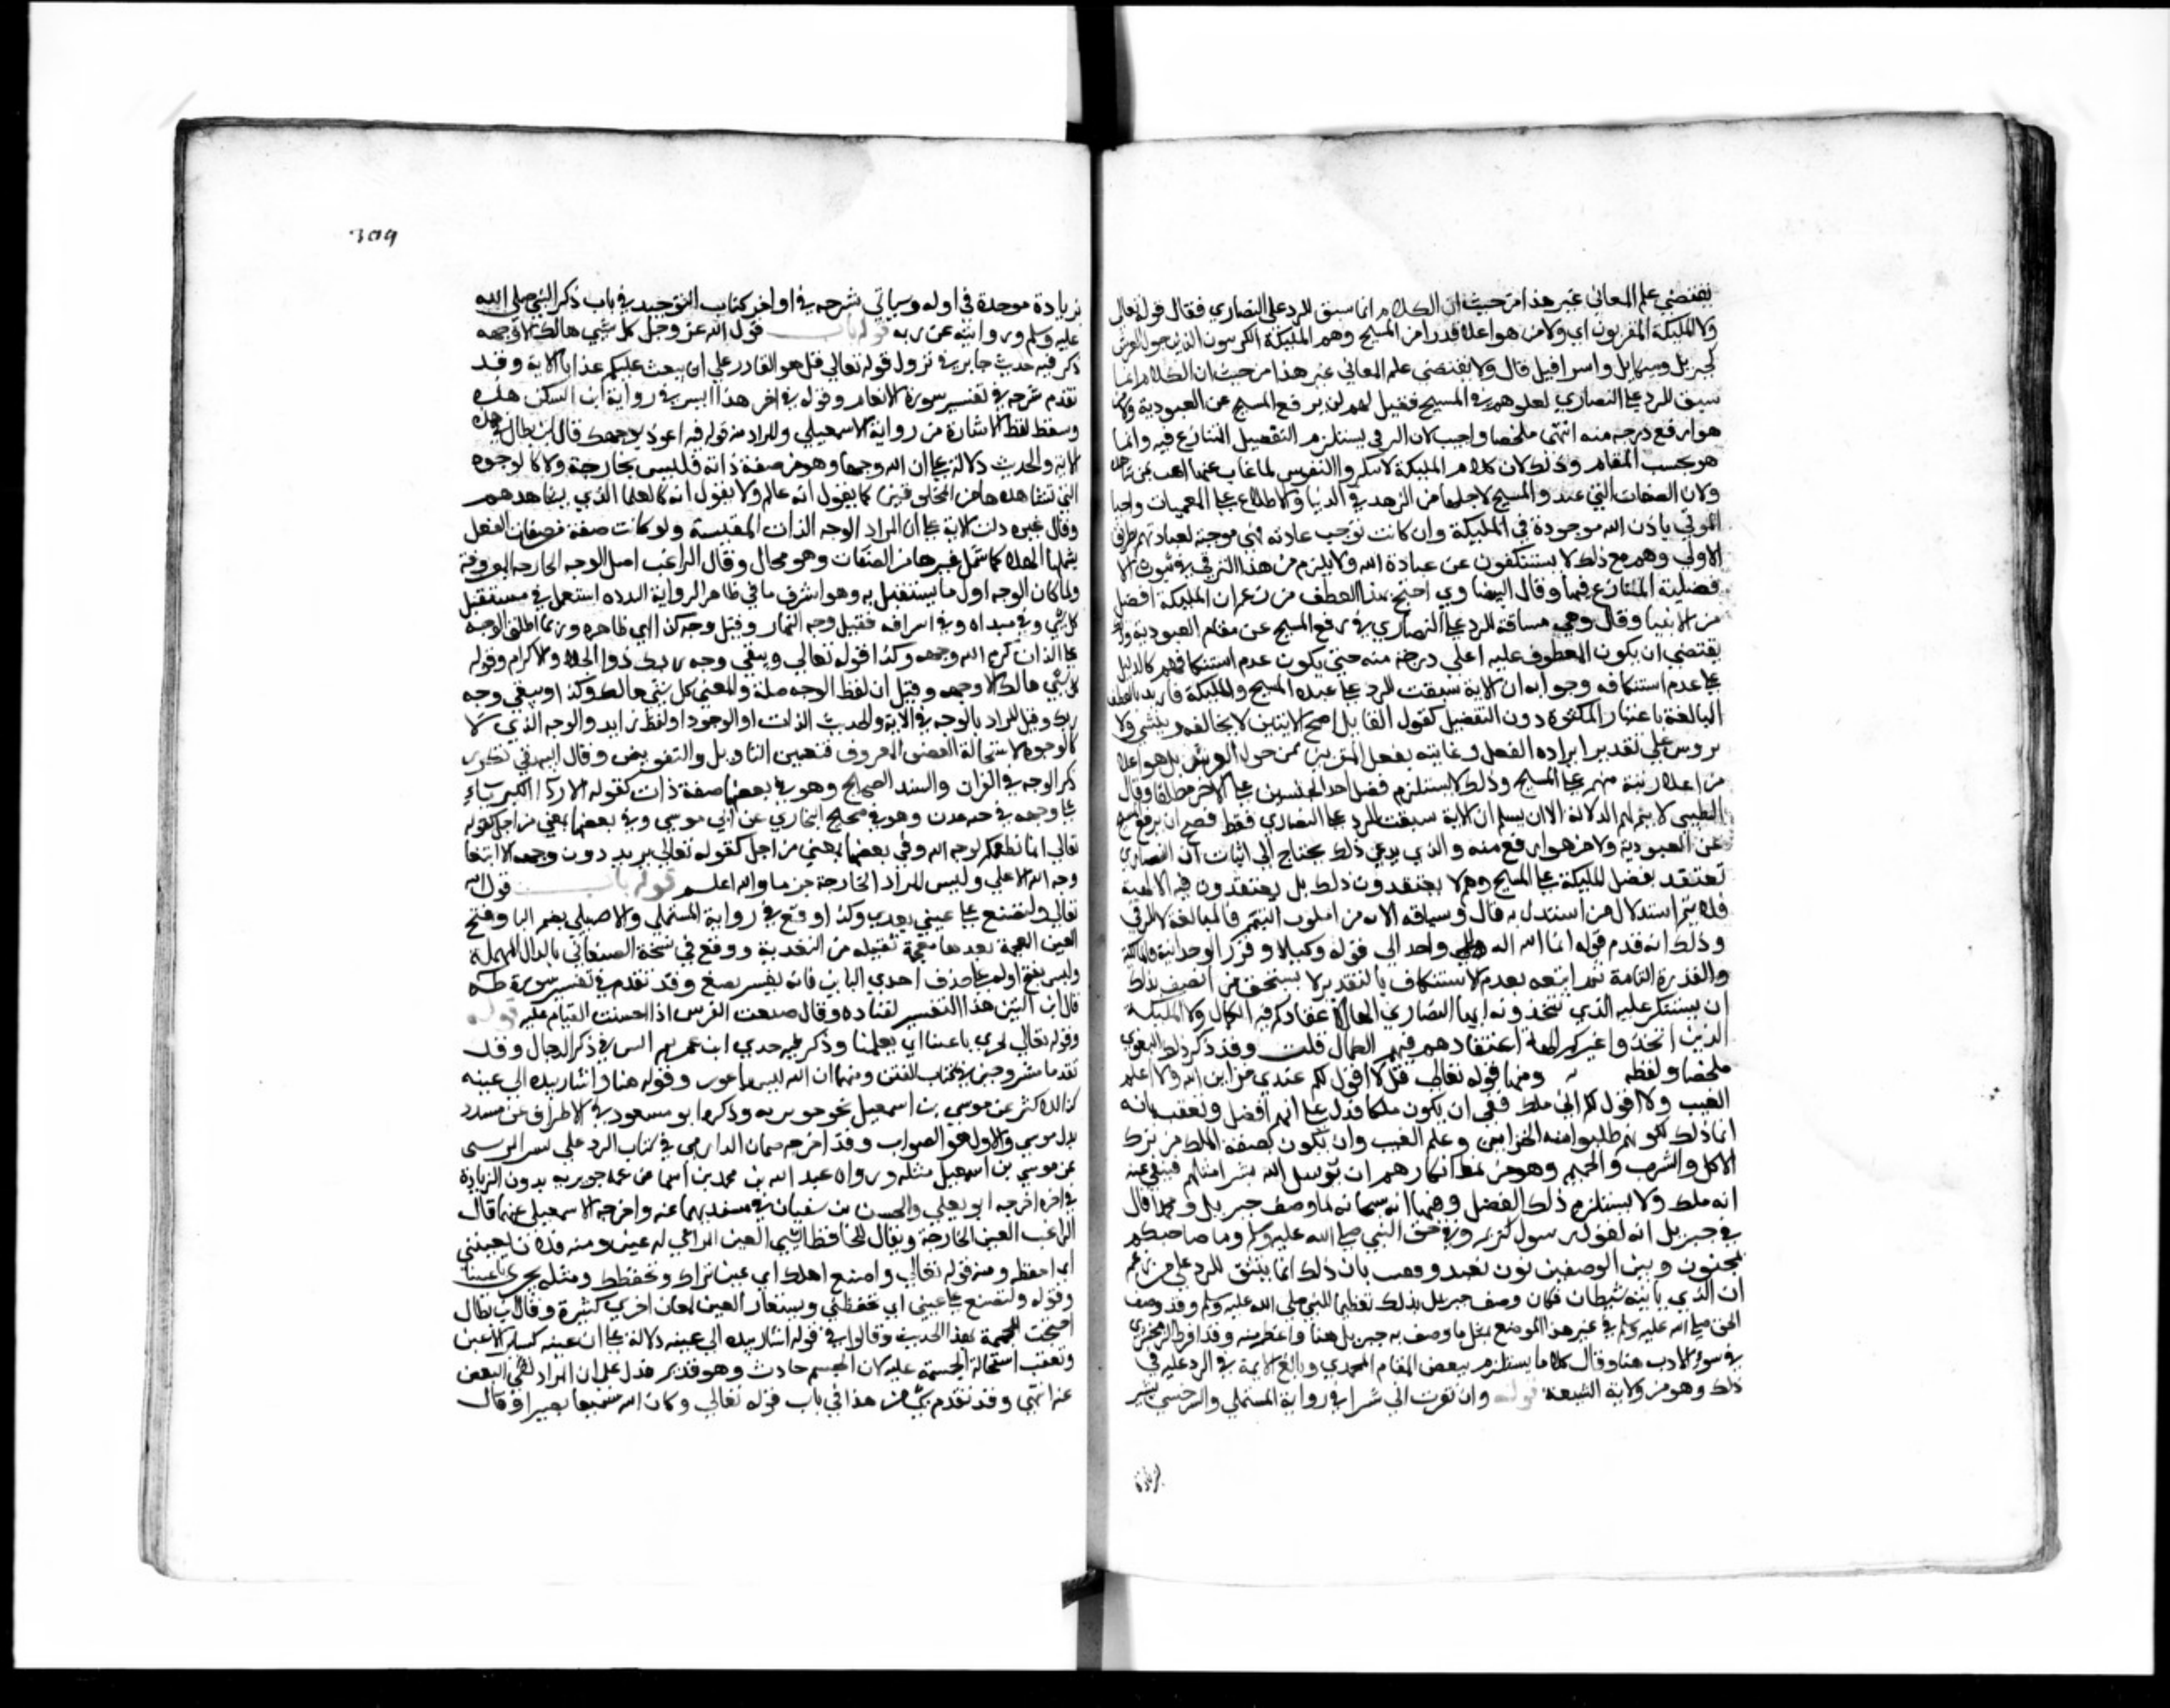 يقتضي علم المعاني غير هذا من حيث ان الكلام انما سيق للرد على النصاري فقال قوله تعالى
ولا المليكة المقربون اي ولا من هو اعلا قدرا من المسيح وهم المليكة الكروبيون الذين حول العرش
كجبريل وميكايل واسرافيل قال ولا يقتضي علم المعاني غير هذا من حيث ان الكلام انما
سيق للرد على النصاري لغلوهم في المسيح فقيل لهم لن يرفع المسيح عن العبودية ولا من
هو ارفع درجه منه انتهى ملخصا واجيب لان الترقي يستلزم التفضيل المتنازع فيه وانما
هو بحسب المقام وذلك لان
ولان الصفات التي عند المسيح لاجلها من الزهد في الدنيا والاطلاع على المغيبات واحيا
الموتى باذن الله موجودة في المليكة وان كانت توجب عبادته فهي موجبة لعبادتهم بطريق
الاولى وهم مع ذلك لا يستنكفون عن عبادة الله ولا يلزم من هذا الترقي ثبوت الا
فضلية المتنازع فيها وقال البيضاوي احتج بهذا العطف من زعم ان المليكة افضل
من الانبيا وقال وهي مساقة للرد على النصاري في رفع المسيح عن مقام العبودية وذلك
يقتضي ان يكون المعطوف عليه اعلى درجة منه حتى يكون عدم استنكافهم كالدليل
على عدم استنكافه وجوابه ان الاية سيقت للرد على عبدة المسيح والمليكة فاريد بالعطف
المبالغة باعتبار الكثرة دون التفضيل كقول القايل اصبح الامير لا يخالفه رييس ولا
مرووس وعلى تقدير ارادة التفضيل وغايته تفضيل المقربين ممن حول العرش بل هو اعلا
من اعلا رتبة منهم على المسيح وذلك لا يستلزم فضل احد الجنسين على الاخر مطلقا وقال
الطيبي لا يتم لهم الدلالة الا ان يسلم ان الاية سيقت للرد على النصارى فقط فصح ان يرفع المسيح
عن العبودية ولا من هو ارفع منه والذي يدعي ذلك يحتاج الى اثبات ان النصارى
تعتقد تفضل المليكة على المسيح وهم لا يعتقدون ذلك بل يعتقدون فيه الالهية
فلا يتم استدلال من استدل به قال وسياقه الاية من اسلوب التتميم والمبالغة لا للترقي
وذلك انه قدم قوله انما الله اله واحد الى قوله وكيلا وقرر الوحدانية والمالكية
والقدرة التامة ثم اتبعه بعدم الاستنكاف بالتقدير لا يستحق من اتصف بذلك
ان يستنكر عليه الذي تتخذونه ايها النصارى الها لاعتقادكم فيه الكمال ولا المليكة
الذين اتخذوا غيركم الهة لاعتقادهم فيهم الكمال قلت وقد ذكر ذلك البغوي
ملخصا ولفظه ومنها قوله تعالى قل لا اقول لكم عندي خزاين الله ولا اعلم
الغيب ولا اقول لكم اني ملك فنفى ان يكون ملكا فدل على انهم افضل وتعقب بانه
انما ذلك لكونهم طلبوا منه الخزاين وعلم الغيب وان يكون كصفة الملك من ترك
الاكل والشرب والجماع وهو من نمط انكارهم ان يرسل الله بشرا مثلهم فينفى عنه
انه ملك ولا يستلزم ذلك الفضل ومنها انه سبحانه لما وصف جبريل ومحمدا قال
في جبريل انه لقول رسول كريم وفي حق النبي صلى الله عليه وسلم وما صاحبكم
بمجنون وبين الوصفين بون بعيد وتعقب بان ذلك انما سيق للرد على من زعم
ان الذي ياتيه شيطان فكان وصف جبريل بذلك تعظيما للنبي صلى الله عليه وسلم وقد وصف
النبي صلى الله عليه وسلم في غير هذا الموضع بمثل ما وصف به جبريل هنا واعظم منه وقد افرط الزمخشري
في سوء الادب هنا وقال كلاما يستلزم تنقيص المقام المحمدي وبالغ الايمة في الرد عليه في
ذلك وهو من زلاته الشنيعة قوله وان تقرب الي شبرا في رواية المستملي والسرخسي بشبر
بزيادة
309
بزيادة موحدة في اوله وسياتي شرحه في اواخر كتاب التوحيد في باب ذكر النبي صلى الله
عليه وسلم وروايته عن ربه قوله باب قول الله عز وجل كل شي هالك الا وجهه
ذكر فيه حديث جابر في نزول قوله تعالى قل هو القادر على ان يبعث عليكم عذابا الاية وقد
تقدم شرحه في تفسير سورة الانعام وقوله في اخر هذا ايسر في رواية ابن السكن هذه
وسقط لفظ الاشارة من رواية الاسمعيلي والمراد منه قوله فيه اعوذ بوجهك قال ابن بطال في هذه
الاية والحديث دلالة على ان لله وجها وهو من صفة ذاته وليس بجارحة ولا كالوجوه
التي نشاهدها من المخلوقين كما نقول انه عالم ولا نقول انه كالعلما الذي نشاهدهم
وقال غيره دلت الاية على ان المراد بالوجه الذات المقدسة ولو كانت صفة من صفات الفعل
يشملها الهلاك كما شمل غيرها من الصفات وهو محال وقال الراغب اصل الوجه الجارحة المعروفة
ولما كان الوجه اول ما يستقبل به وهو اشرف ما في ظاهر البدن استعمل في مستقبل
كل شي وفي مبداه وفي اشراقه فقيل وجه النهار وقيل وجه كذا اي ظاهره وربما اطلق الوجه
على الذات كرم الله وجهه وكذا قوله تعالى ويبقى وجه ربك ذو الجلال والاكرام وقوله
كل شي هالك الا وجهه وقيل ان لفظ الوجه صلة والمعنى كل شي هالك وكذا ويبقى وجه
ربك وقيل المراد بالوجه في الاية والحديث الذات او الوجود او لفظ زايد والوجه الذي لا
كالوجوه لاستحالة العضو المعروف فتعين التاويل والتفويض وقال البيهقي تكرر
ذكر الوجه في القران والسنة الصحيح وهو في بعضها صفة ذات كقوله الا رداء الكبرياء
على وجهه في جنة عدن وهو في صحيح البخاري عن ابي موسى وفي بعضها بمعنى من اجل كقوله
تعالى انما نطعمكم لوجه الله وفي بعضها بمعنى من اجل كقوله تعالى يريدون وجهه الا ابتغا
وجه الاعلى وليس المراد الجارحة جزما والله اعلم قوله باب قول الله
تعالى ولتصنع على عيني تغذى وكذا وقع في رواية المستملي والاصيلي بضم التا وفتح
الغين المعجمة بعدها معجمة ثقيلة من التغذية ووقع في نسخة الصغاني بالدال المهملة
وليس بفتح اوله على حذف احدى التاين فانه تفسير تصنع وقد تقدم في تفسير سورة طه
قال ابن التين هذا التفسير لقتادة ويقال صنعت الفرس اذا احسنت القيام عليه قوله
وقوله تعالى تجري باعيننا اي بعلمنا وذكر فيه حديثي ابن عمر ثم انس في ذكر الدجال وقد
تقدما مشروحين في كتاب الفتن ومنها ان الله ليس باعور وقوله هنا واشار بيده الى عينه
كذا للاكثر عن موسى بن اسمعيل نحو جويرية وذكره ابو مسعود في الاطراف عن مسدد
بدل موسى والاول هو الصواب وقد اخرجه عثمان الدارمي في كتاب الرد على بشر المريسي
عن موسى بن اسمعيل مثله ورواه عبد الله بن محمد بن اسما عن عمه جويرية بدون الزيادة
في اخره اخرجه ابو يعلى والحسن بن سفيان في مسنديهما عنه واخرجه الاسمعيلي عنهما قال
الراغب العين الجارحة ويقال للحافظ للشي المراعي له عين ومنه فلان بعيني
اي احفظه ومنه قوله تعالى واصنع الفلك اي نحن نراك ونحفظك ومثله تجري باعيننا
وقوله ولتصنع على عيني اي بحفظي وتستعار العين لمعان اخرى كثيرة وقال ابن بطال
احتجت المجسمة بهذا الحديث وقالوا في قوله اشار بيده الى عينه دلالة على ان عينه كساير الاعين
وتعقب استحالة الجسمية عليه لان الجسم حادث وهو قديم فدل على ان المراد نفي النقص
عنه انتهى وقد تقدم شي من هذا في باب قوله تعالى وكان الله سميعا بصيرا وقال